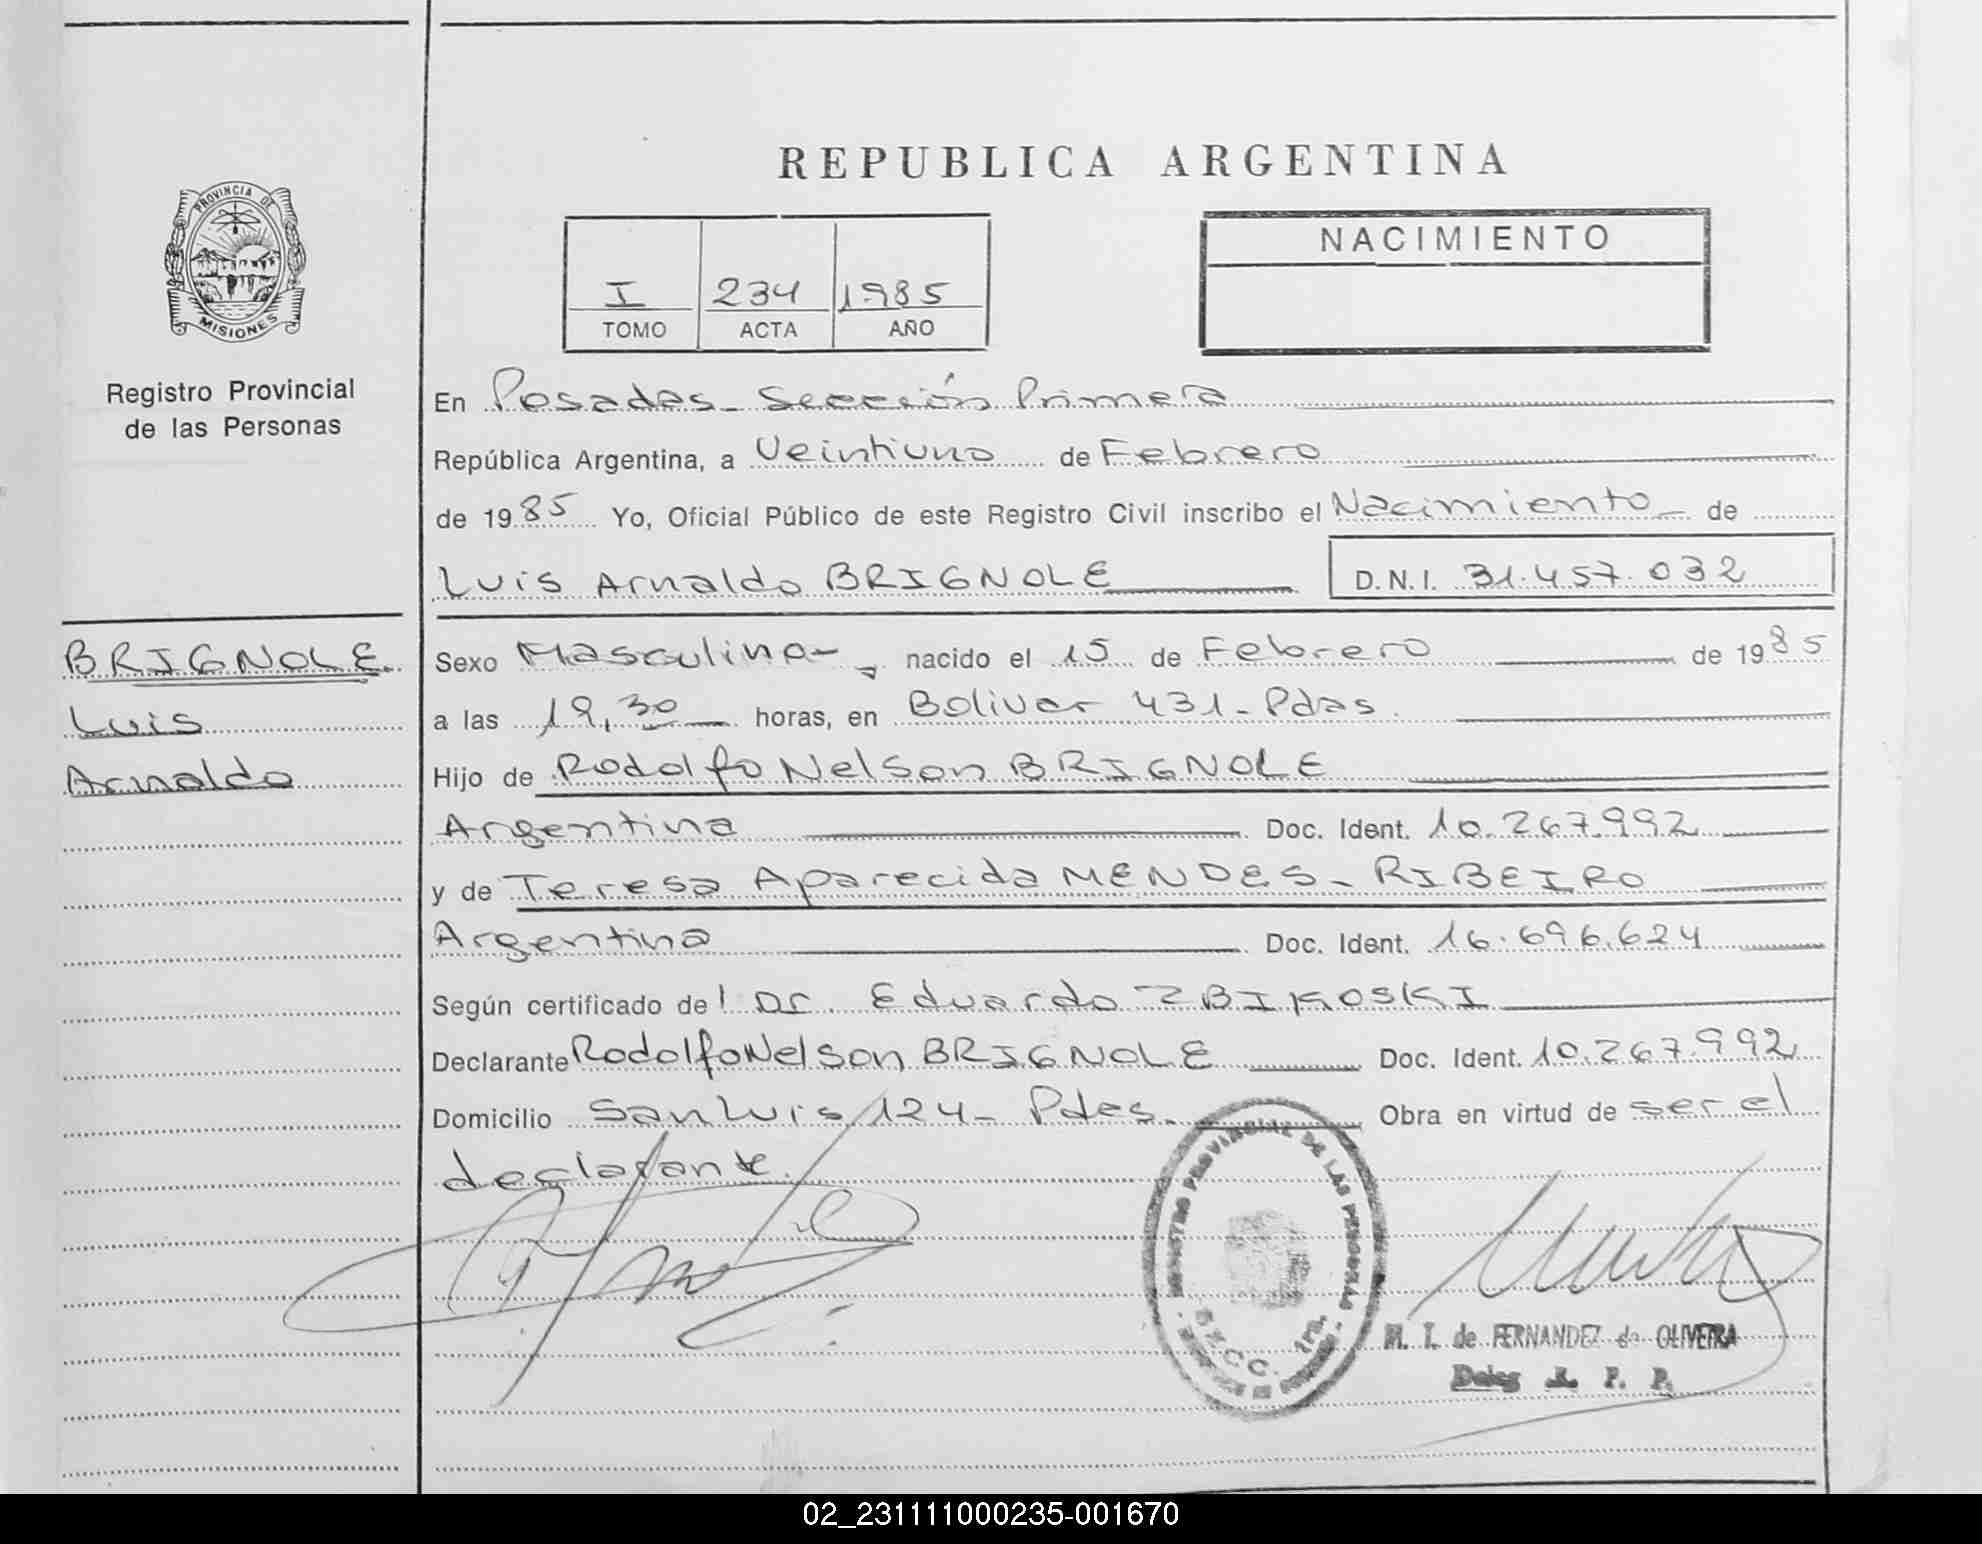 REPUBLICA ARGENTINA
PROVINCIA DE
MISIONES
Registro Provincial
de las Personas
I 234 1985
TOMO ACTA AÑO
NACIMIENTO
En Posadas - Sección Primera
República Argentina, a Veintiuno de Febrero
de 1985 Yo, Oficial Público de este Registro Civil inscribo el Nacimiento - de
Luis Arnaldo BRIGNOLE D.N.I. 31.457.032
BRIGNOLE
Luis
Arnaldo
Sexo Masculino - nacido el 15 de Febrero de 1985
a las 19,30 horas, en Bolivar 431 - Pdas.
Hijo de Rodolfo Nelson BRIGNOLE
Argentina Doc. Ident. 10.267.992
y de Teresa Aparecida MENDES - RIBEIRO
Argentina Doc. Ident. 16.696.624
Según certificado del Dr. Eduardo ZBIKOSKI
Declarante Rodolfo Nelson BRIGNOLE Doc. Ident. 10.267.992
Domicilio San Luis 124 - Pdas. Obra en virtud de ser el
declarante.
REGISTRO PROVINCIAL DE LAS PERSONAS
SECC. 1ra.
M. I. de FERNANDEZ de OLIVEIRA
Deleg R. P. P.
02_231111000235-001670